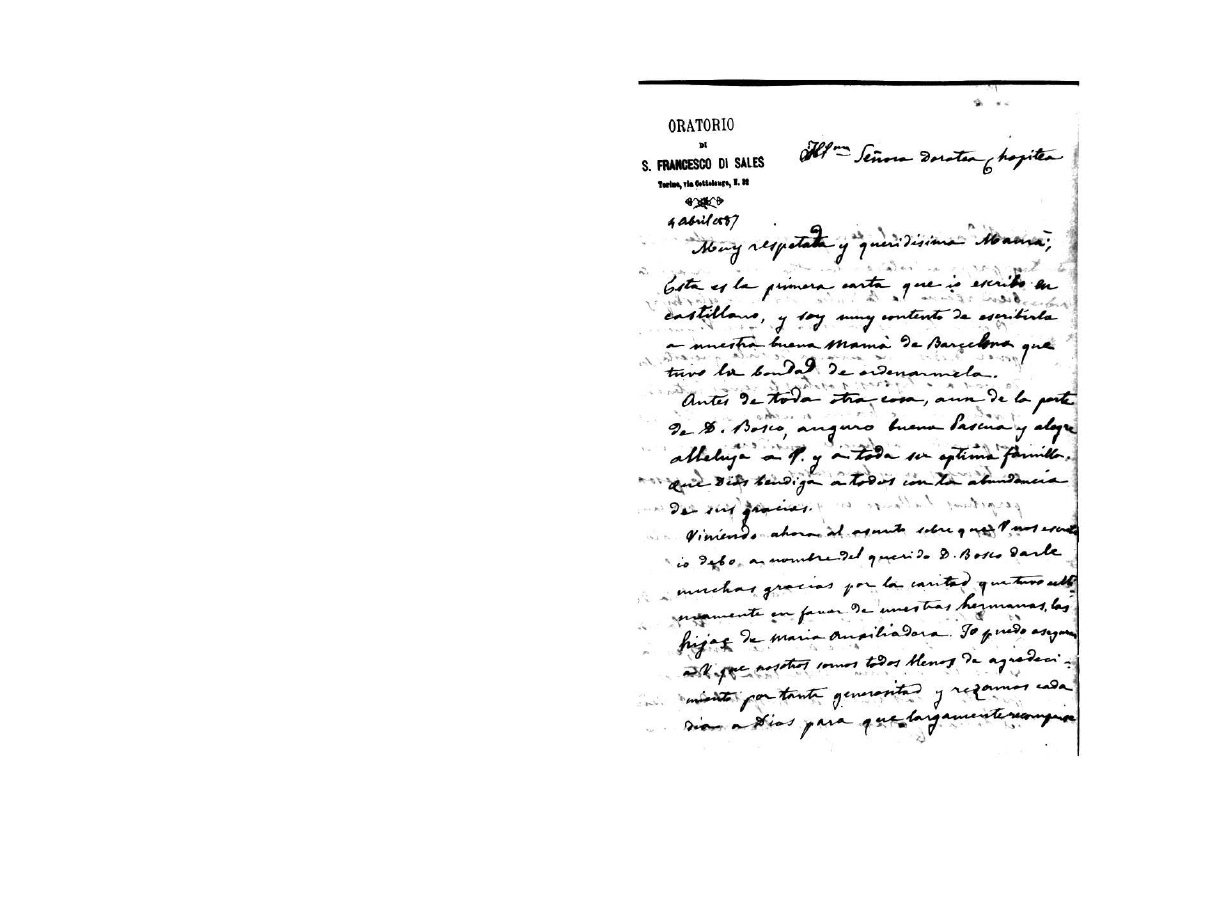 ORATORIO
DI
S. FRANCESCO DI SALES
Torino, via Cottolengo, N. 32
4 abril 1887
Señora Dorotea Chopitea
Muy respetada y queridisima Mamá;
Esta es la primera carta que io escribo en
castillano, y soy muy contento de escribirla
a nuestra buena Mamá de Barcelona que
tuvo la bondad de ordenarmela.
Antes de toda otra cosa, aun de la parte
de D. Bosco, auguro buena Pascua y alegre
alleluja a V. y a toda su optima familla.
Que Dios bendiga a todos con la abundancia
de sus gracias.
Viniendo ahora al asunto sobre que V nos
io debo a nombre del querido D. Bosco darle
muchas gracias por la caritad que tuvo
en favor de nuestras hermanas, las
hijas de Maria Auxiliadora. Io puedo
a V. que nosotros somos todos llenos de agradeci-
miento por tanta generositad y rezamos cada
dia a Dios para que largamente